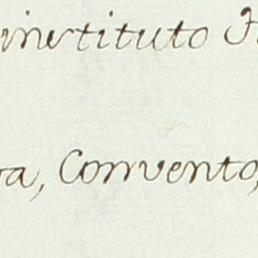 instituto
Convento,